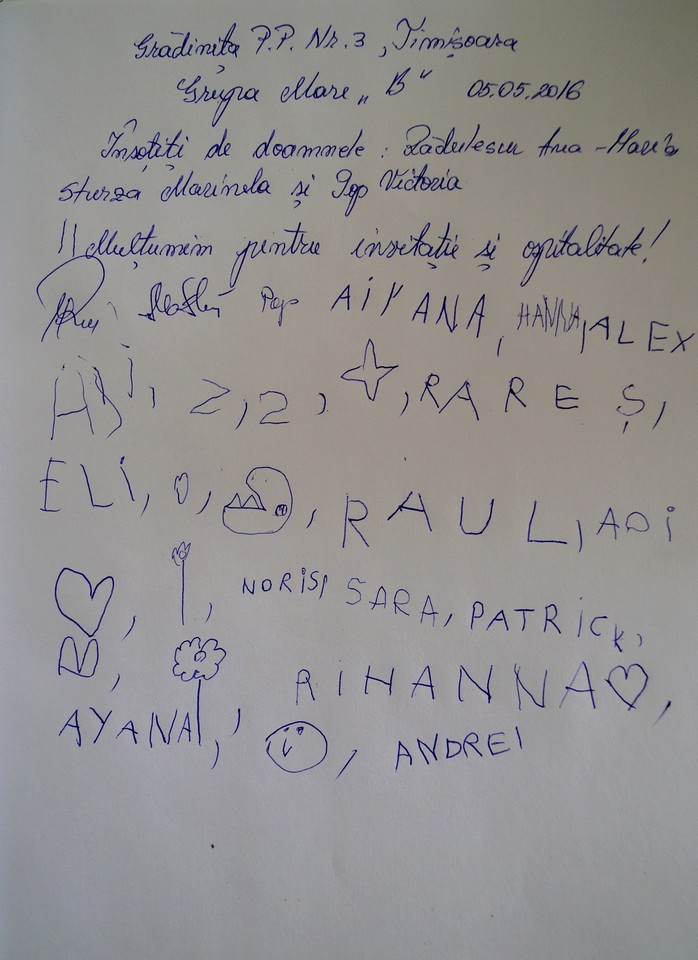 Grădinița P.P. Nr. 3, Timișoara
Grupa Mare „B" 05.05.2016
Însoțiți de doamnele: Rădulescu Ana-Maria
Sturza Marinela și Pop Victoria
Mulțumim pentru invitație și ospitalitate!
Pop AIYANA, HANNA, ALEX
2, 2, , RAREȘ,
ELI, O, , RAUL, ADI
, , NORIS, SARA, PATRICK,
B, RIHANNA,
AYANA, , ANDREI